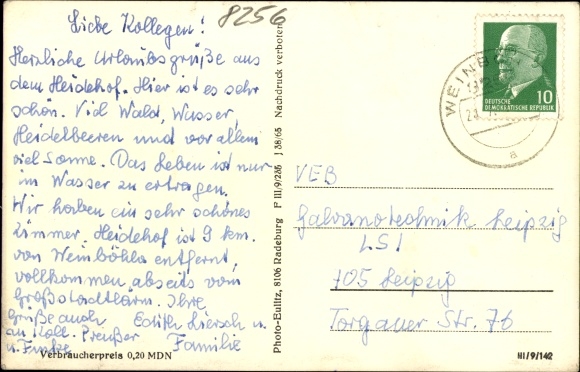 8256
Liebe Kollegen!
Herzliche Urlaubsgrüße aus
dem Heidehof. Hier ist es sehr
schön. Viel Wald, Wasser,
Heidelbeeren und vor allem
viel Sonne. Das Leben ist nur
im Wasser zu ertragen.
Wir haben ein sehr schönes
Zimmer. Heidehof ist 9 km.
von Weinböhla entfernt,
vollkommen abseits vom
Großstadtlärm. Ihre
Grüße auch Edith Liersch u.
an Koll. Preußer Familie
u. Funke
Verbraucherpreis 0,20 MDN
Photo-Eulitz, 8106 Radeburg F III/9/265 J 38/65 Nachdruck verboten
WEINB
DEUTSCHE
DEMOKRATISCHE REPUBLIK
10
a
VEB
Galvanotechnik Leipzig
LS1
705 Leipzig
Torgauer Str. 76
III/9/142